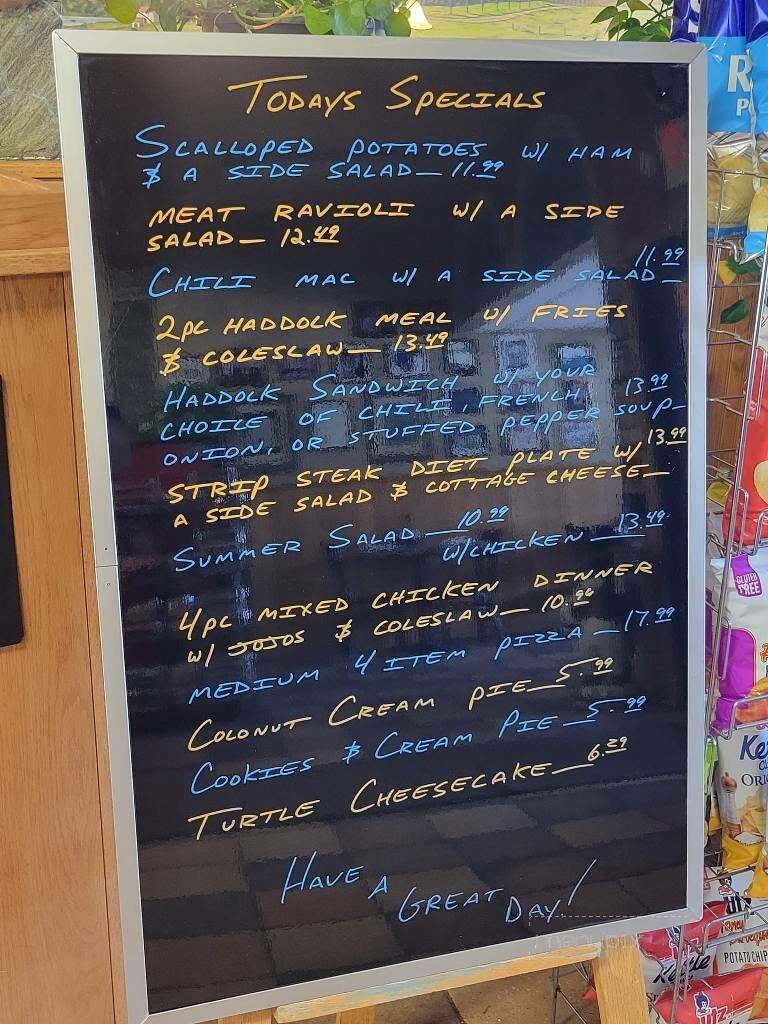 TODAYS SPECIALS
SCALLOPED POTATOES W/ HAM
& A SIDE SALAD— 11.99
MEAT RAVIOLI W/ A SIDE
SALAD— 12.49
CHILI MAC W/ A SIDE SALAD— 11.99
2PC HADDOCK MEAL W/ FRIES
& COLESLAW— 13.49
HADDOCK SANDWICH W/ YOUR
CHOICE OF CHILI, FRENCH 13.99
ONION, OR STUFFED PEPPER SOUP—
STRIP STEAK DIET PLATE W/ 13.99
A SIDE SALAD & COTTAGE CHEESE—
SUMMER SALAD— 10.99
W/CHICKEN— 13.49
4PC MIXED CHICKEN DINNER
W/ JOJOS & COLESLAW— 10.99
MEDIUM 4 ITEM PIZZA— 17.99
COCONUT CREAM PIE— 5.99
COOKIES & CREAM PIE— 5.99
TURTLE CHEESECAKE— 6.29
HAVE A GREAT DAY!
GLUTEN
FREE
Kettle
POTATO CHIP
UTZ